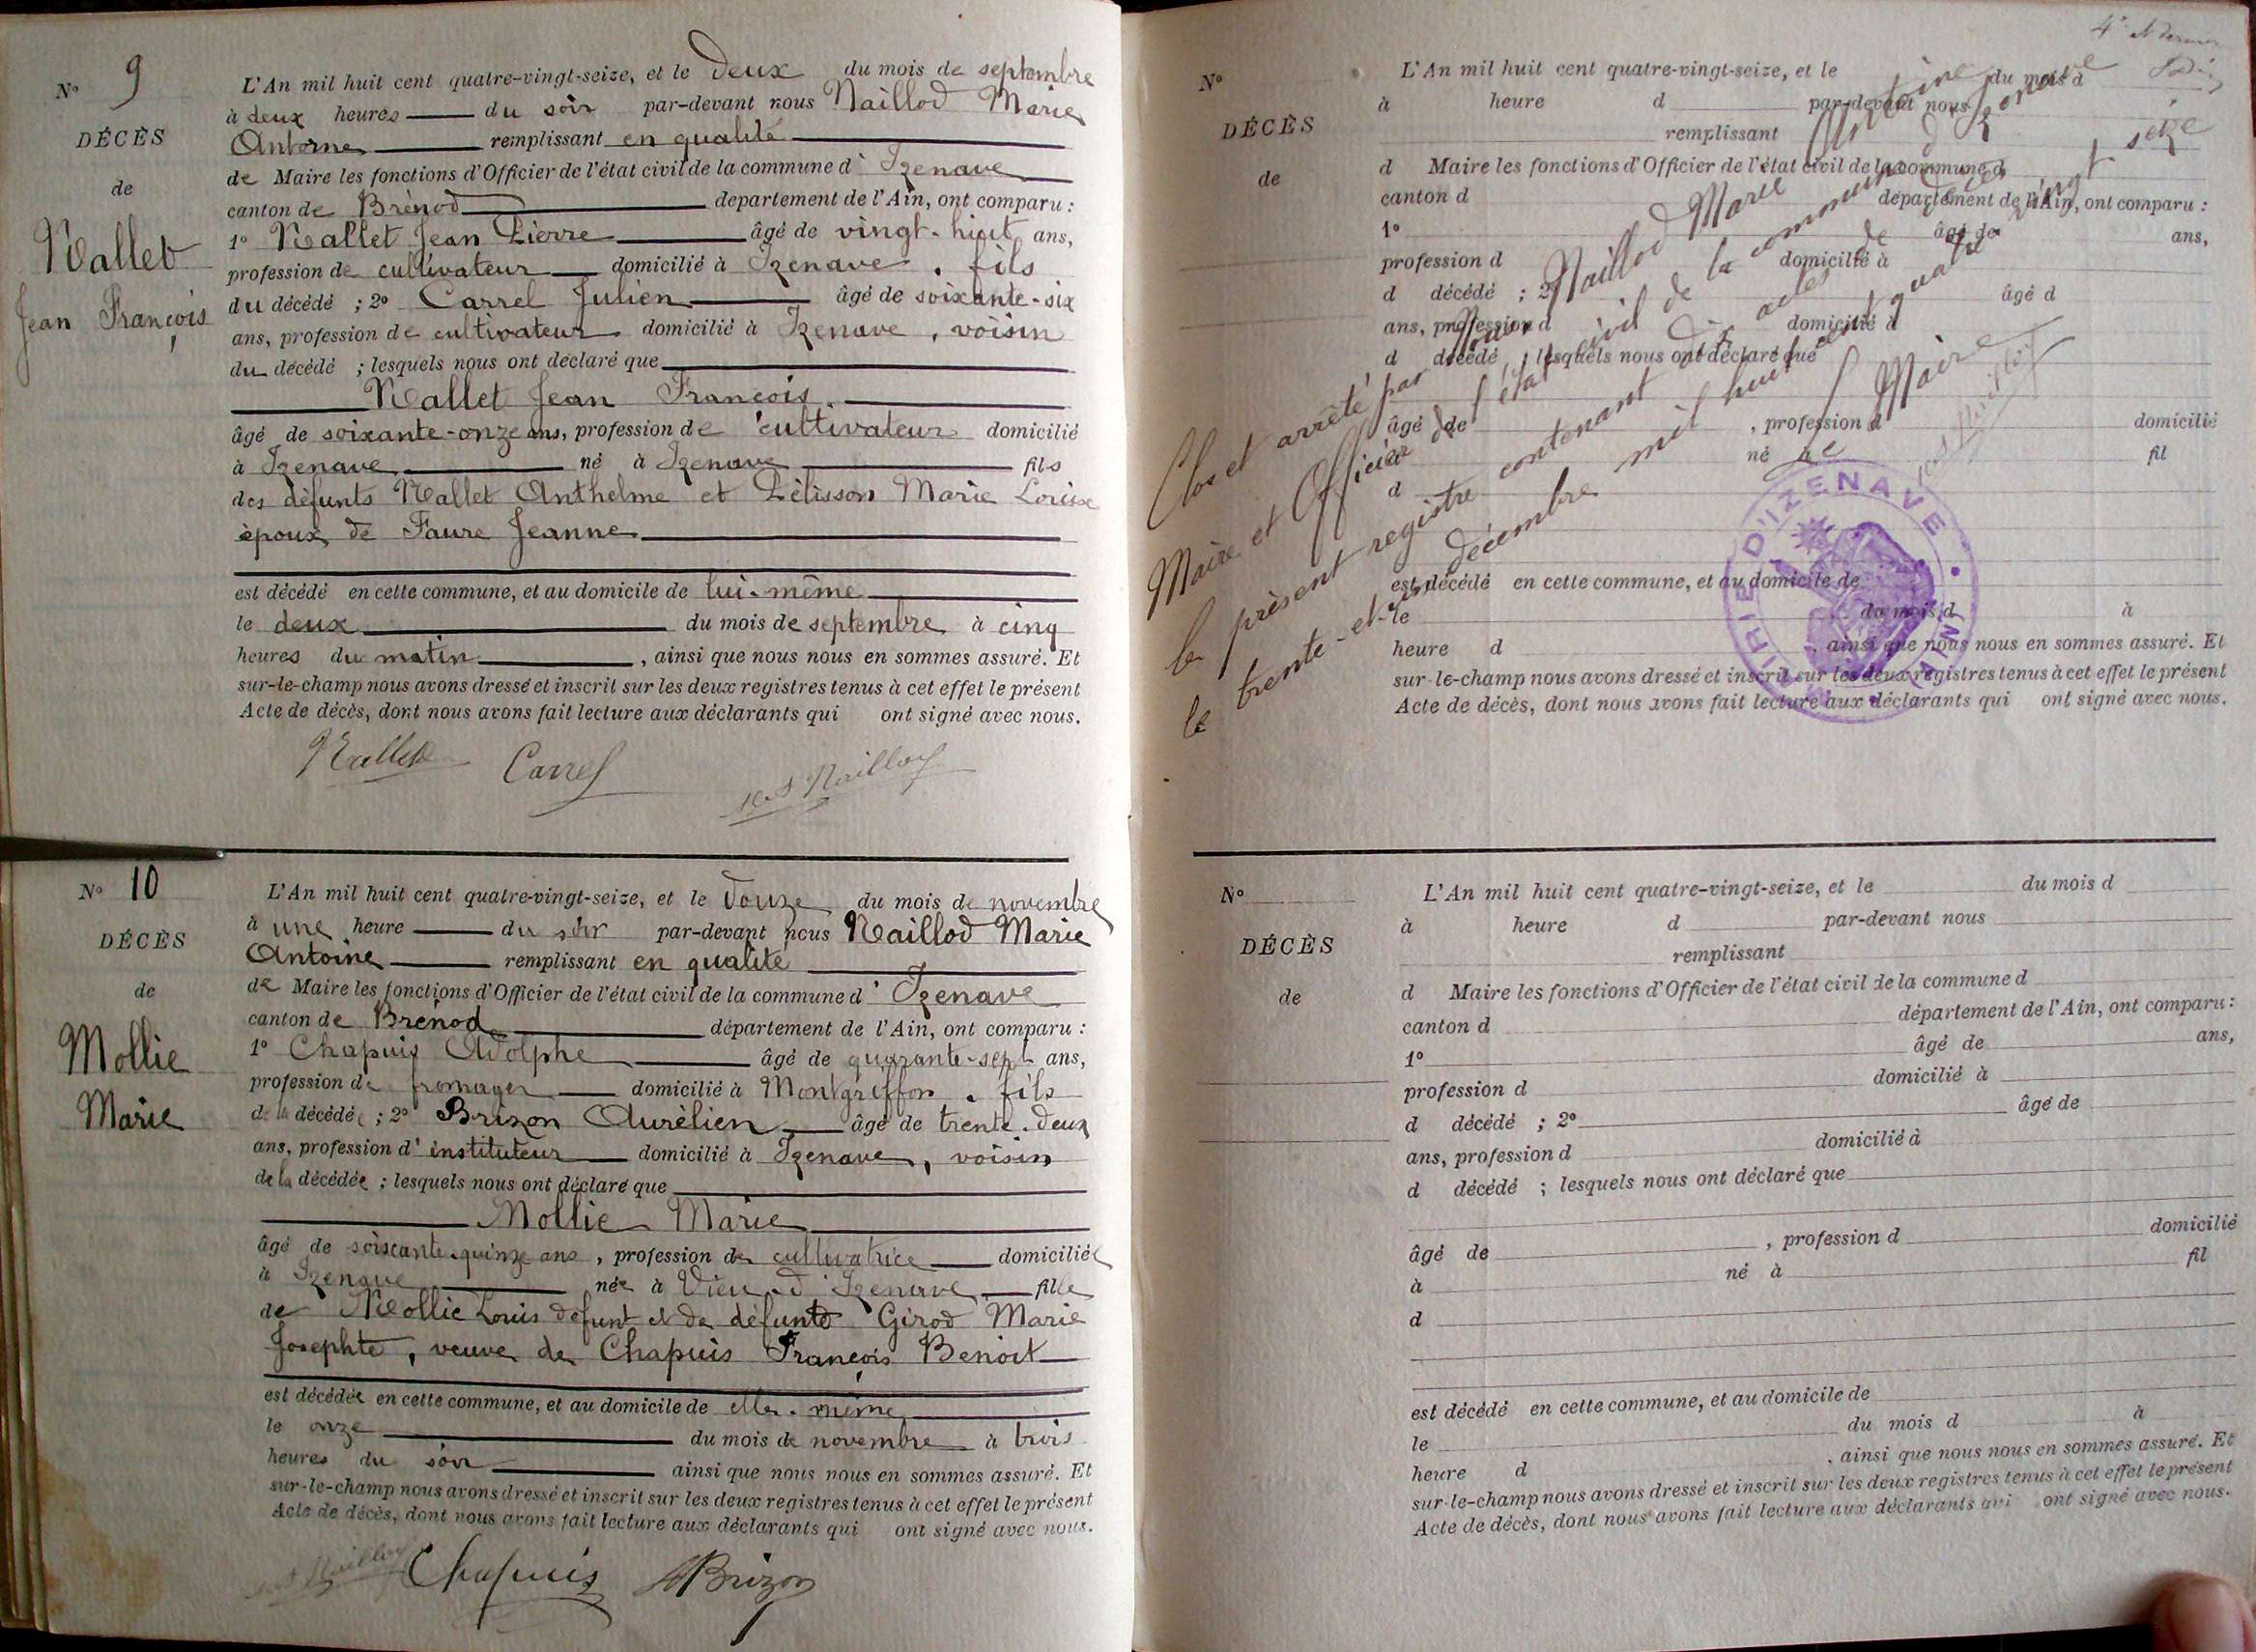 N° 9
DÉCÈS
de
Nallet
Jean François
L'An mil huit cent quatre-vingt-seize, et le deux du mois de septembre
à deux heures du soir par-devant nous Naillod Marie
Antoine remplissant en qualité
de Maire les fonctions d'Officier de l'état civil de la commune d'Izenave
canton de Brénod département de l'Ain, ont comparu :
1° Nallet Jean Pierre âgé de vingt-huit ans,
profession de cultivateur domicilié à Izenave, fils
du décédé ; 2° Carrel Julien âgé de soixante-six
ans, profession de cultivateur domicilié à Izenave, voisin
du décédé ; lesquels nous ont déclaré que
Nallet Jean François
âgé de soixante-onze ans, profession de cultivateur domicilié
à Izenave né à Izenave fils
des défunts Nallet Anthelme et Pélisson Marie Louise
époux de Faure Jeanne
est décédé en cette commune, et au domicile de lui-même
le deux du mois de septembre à cinq
heures du matin, ainsi que nous nous en sommes assuré. Et
sur-le-champ nous avons dressé et inscrit sur les deux registres tenus à cet effet le présent
Acte de décès, dont nous avons fait lecture aux déclarants qui ont signé avec nous.
Nallet Carrel Naillod
N° 10
DÉCÈS
de
Mollie
Marie
L'An mil huit cent quatre-vingt-seize, et le douze du mois de novembre
à une heure du soir par-devant nous Naillod Marie
Antoine remplissant en qualité
de Maire les fonctions d'Officier de l'état civil de la commune d'Izenave
canton de Brénod département de l'Ain, ont comparu :
1° Chapuis Adolphe âgé de quarante-sept ans,
profession de fromager domicilié à Montgriffon, fils
de la décédée ; 2° Brizon Aurélien âgé de trente-deux
ans, profession d'instituteur domicilié à Izenave, voisin
de la décédée ; lesquels nous ont déclaré que
Mollie Marie
âgé de soixante-quinze ans, profession de cultivatrice domiciliée
à Izenave née à Vieu-d'Izenave fille
de Mollie Louis défunt et de défunte Girod Marie
Josephte, veuve de Chapuis François Benoit
est décédée en cette commune, et au domicile de elle-même
le onze du mois de novembre à trois
heures du soir ainsi que nous nous en sommes assuré. Et
sur-le-champ nous avons dressé et inscrit sur les deux registres tenus à cet effet le présent
Acte de décès, dont nous avons fait lecture aux déclarants qui ont signé avec nous.
Naillod Chapuis ABrizon
4e et dernier
N°
DÉCÈS
de
L'An mil huit cent quatre-vingt-seize, et le du mois d
à heure d par-devant nous
remplissant
d Maire les fonctions d'Officier de l'état civil de la commune d
canton d département de l'Ain, ont comparu :
1° âgé de ans,
profession d domicilié à
d décédé ; 2° âgé d
ans, profession d domicilié à
d décédé ; lesquels nous ont déclaré que
âgé de , profession d domicilié
né à fil
d
est décédé en cette commune, et au domicile de
le du mois d à
heure d , ainsi que nous nous en sommes assuré. Et
sur-le-champ nous avons dressé et inscrit sur les deux registres tenus à cet effet le présent
Acte de décès, dont nous avons fait lecture aux déclarants qui ont signé avec nous.
Clos et arrêté par Nous, Naillod Marie Antoine
Maire et Officier de l'état civil de la commune d'Izenave
le présent registre contenant dix actes de décès
le trente-et-un décembre mil huit cent quatre vingt seize
Le Maire
MAIRIE D'IZENAVE (AIN)
N°
DÉCÈS
de
L'An mil huit cent quatre-vingt-seize, et le du mois d
à heure d par-devant nous
remplissant
d Maire les fonctions d'Officier de l'état civil de la commune d
canton d département de l'Ain, ont comparu :
1° âgé de ans,
profession d domicilié à
d décédé ; 2° âgé de
ans, profession d domicilié à
d décédé ; lesquels nous ont déclaré que
âgé de , profession d domicilié
à né à fil
d
est décédé en cette commune, et au domicile de
le du mois d à
heure d , ainsi que nous nous en sommes assuré. Et
sur-le-champ nous avons dressé et inscrit sur les deux registres tenus à cet effet le présent
Acte de décès, dont nous avons fait lecture aux déclarants qui ont signé avec nous.